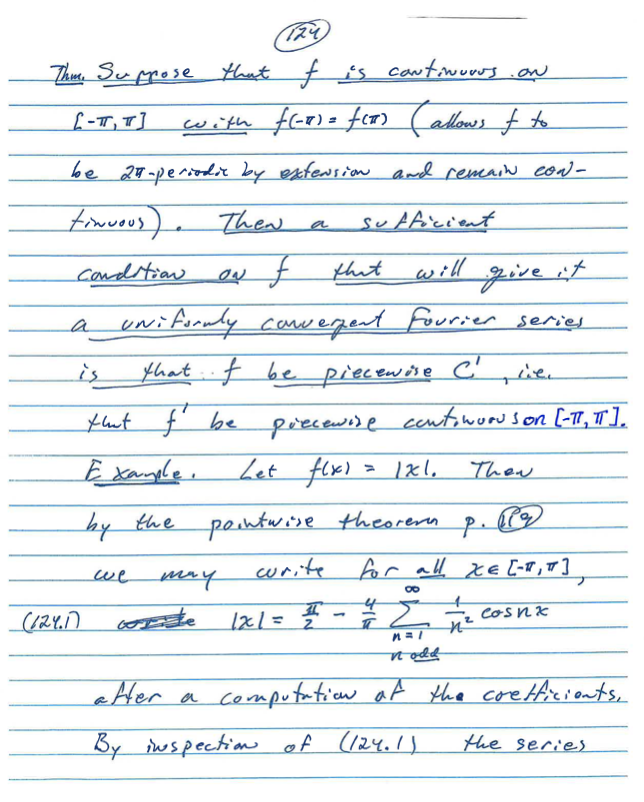 124
Thm. Suppose that f is continuous on
[-π, π] with f(-π) = f(π) (allows f to
be 2π-periodic by extension and remain con-
tinuous). Then a sufficient
condition on f that will give it
a uniformly convergent Fourier series
is that f be piecewise C', i.e.
that f' be piecewise continuous on [-π, π].
Example. Let f(x) = |x|. Then
by the pointwise theorem p. 119
we may write for all x ∈ [-π, π],
(124.1) |x| = π/2 - 4/π ∑_{n=1, n odd}^{∞} 1/n² cos nx
after a computation of the coefficients.
By inspection of (124.1) the series